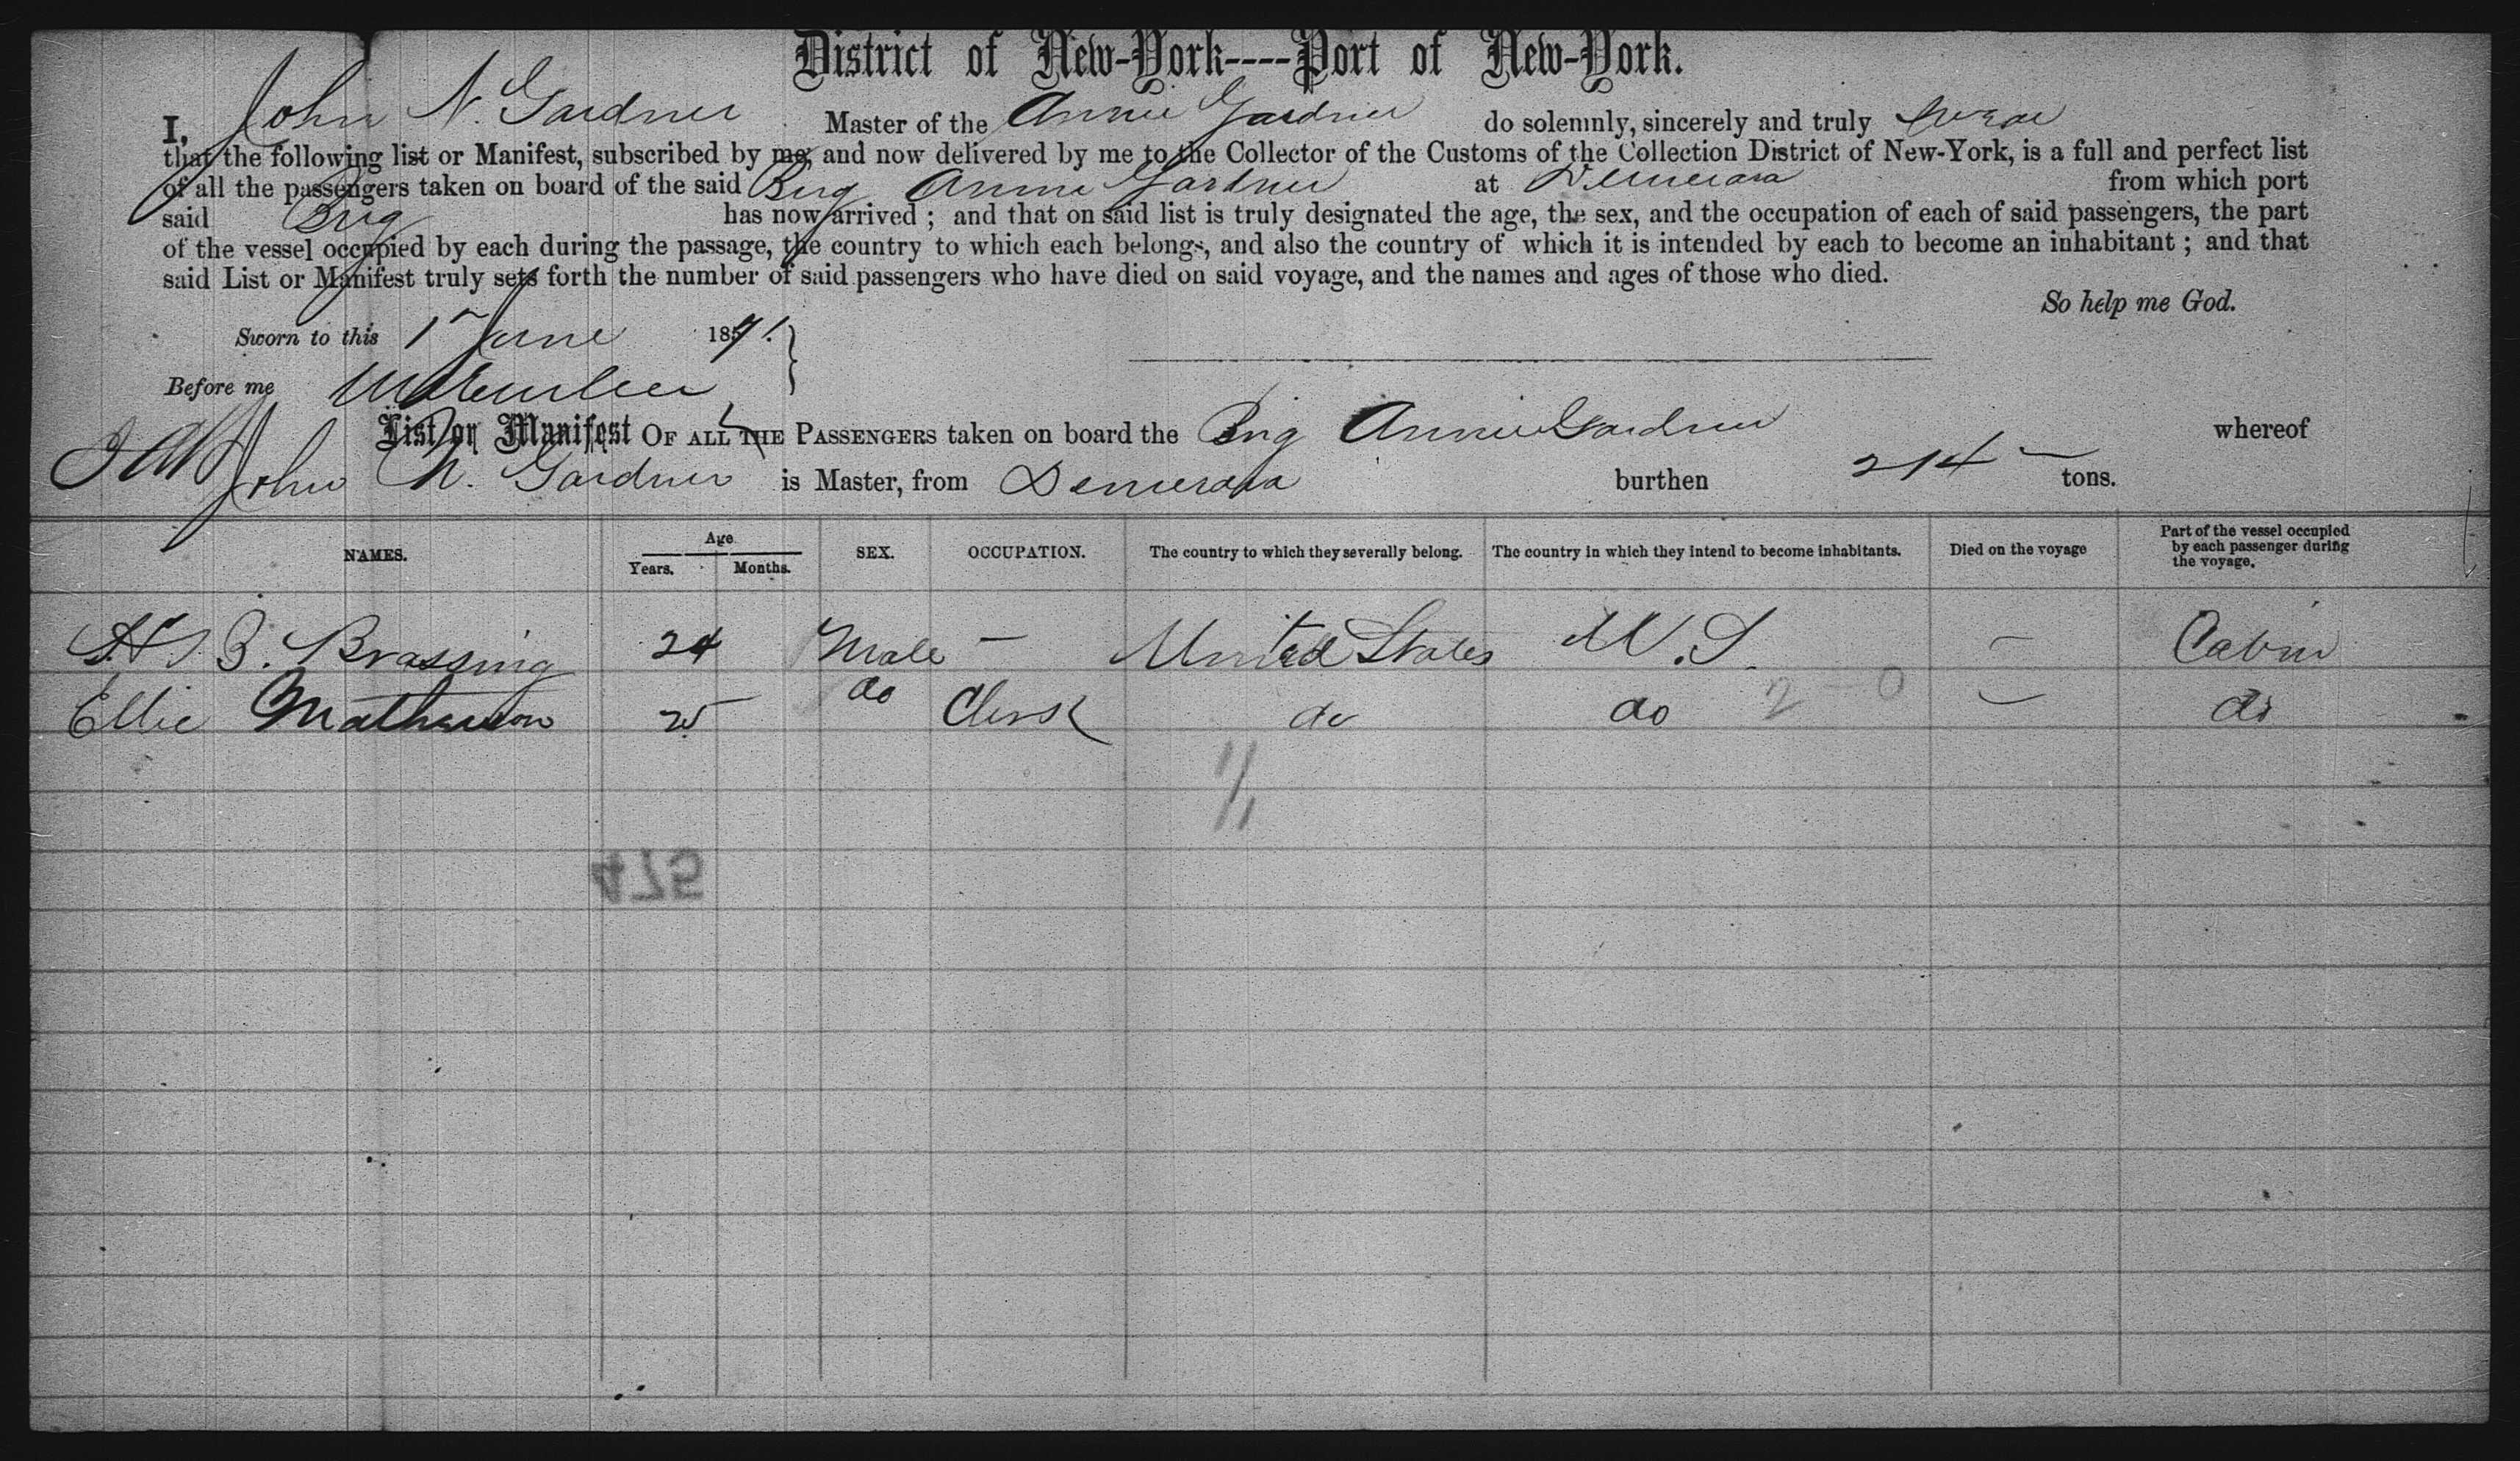 District of New-York----Port of New-York.
I, John N. Gardner Master of the Annie Gardner do solemnly, sincerely and truly swear
that the following list or Manifest, subscribed by me, and now delivered by me to the Collector of the Customs of the Collection District of New-York, is a full and perfect list
of all the passengers taken on board of the said Brig Annie Gardner at Demerara from which port
said Brig has now arrived ; and that on said list is truly designated the age, the sex, and the occupation of each of said passengers, the part
of the vessel occupied by each during the passage, the country to which each belongs, and also the country of which it is intended by each to become an inhabitant ; and that
said List or Manifest truly sets forth the number of said passengers who have died on said voyage, and the names and ages of those who died.
So help me God.
Sworn to this 1 June 1871.
Before me
John N. Gardner
List or Manifest OF ALL THE PASSENGERS taken on board the Brig Annie Gardner whereof
John N. Gardner is Master, from Demerara burthen 214 tons.
NAMES. Age Years. Months. SEX. OCCUPATION. The country to which they severally belong. The country in which they intend to become inhabitants. Died on the voyage Part of the vessel occupied by each passenger during the voyage.
B. Brassing 24 Male — United States U.S. — Cabin
Ellie Mathewson 25 do Clerk do do 2-0 — do
11
11
475